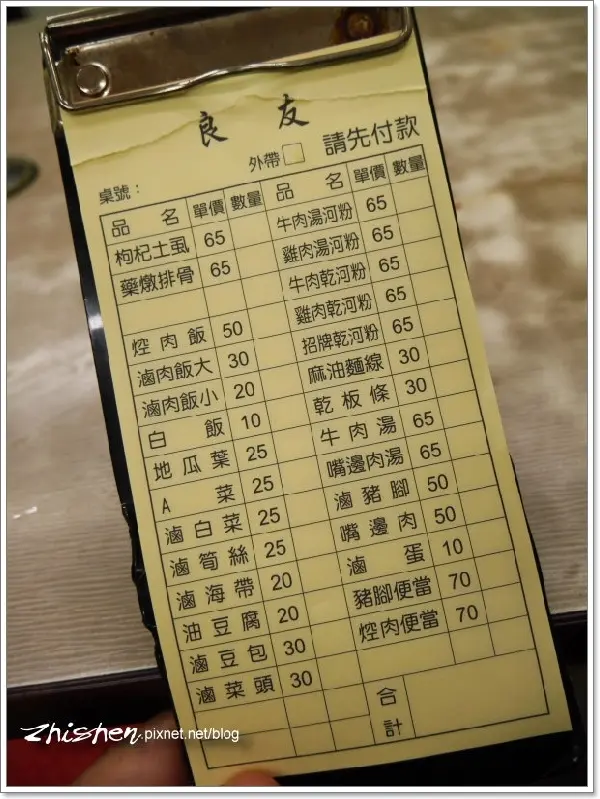 良友
外帶 請先付款
桌號：
品名 單價 數量 品名 單價 數量
枸杞土虱 65
藥燉排骨 65
焢肉飯 50
滷肉飯大 30
滷肉飯小 20
白飯 10
地瓜葉 25
A菜 25
滷白菜 25
滷筍絲 25
滷海帶 20
油豆腐 20
滷豆包 30
滷菜頭 30
牛肉湯河粉 65
雞肉湯河粉 65
牛肉乾河粉 65
雞肉乾河粉 65
招牌乾河粉 65
麻油麵線 30
乾板條 30
牛肉湯 65
嘴邊肉湯 65
滷豬腳 50
嘴邊肉 50
滷蛋 10
豬腳便當 70
焢肉便當 70
合計
zhishen.pixnet.net/blog